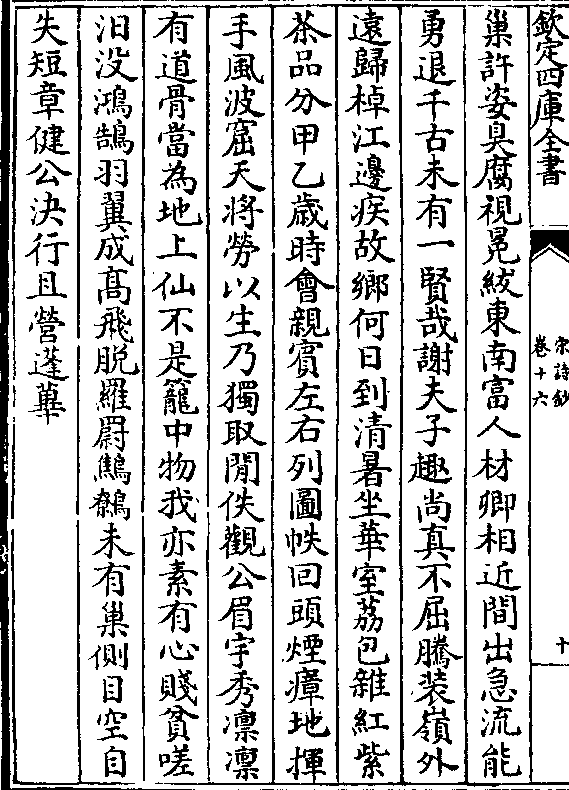 欽定四庫全書
宋詩鈔
卷十六
十
巢許姿臭腐視冕紱東南富人材卿相近間出急流能
勇退千古未有一賢哉謝夫子趣尚真不屈騰裝嶺外
遠歸棹江邊疾故鄉何日到清暑坐華室荔包雜紅紫
茶品分甲乙歲時會親賓左右列圖帙回頭煙瘴地揮
手風波窟天將勞以生乃獨取閒佚觀公眉宇秀凛凛
有道骨當為地上仙不是籠中物我亦素有心賤貧嗟
汨没鴻鵠羽翼成髙飛脱羅罻鷦鷯未有巢側目空自
失短章健公决行且營蓬蓽